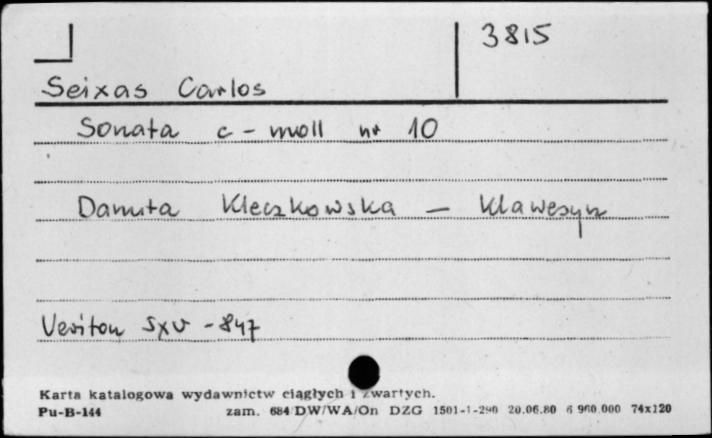 3815
Seixas Carlos
Sonata c-moll nr 10
Danuta Kleczkowska — Klawesyn
Veriton SXV - 847
Karta katalogowa wydawnictw ciągłych i zwartych.
Pu-B-144 zam. 684/DW/WA/On DZG 1501-1-290 20.06.80 6 900.000 74x120